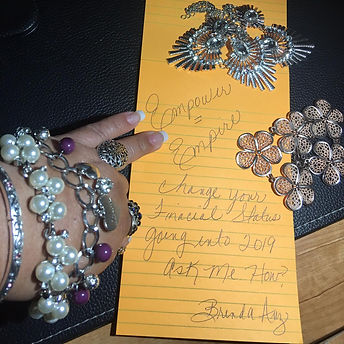 Empower
=
Empire
Change Your
Finacial Status
going into 2019
Ask Me How?
Brenda Ang